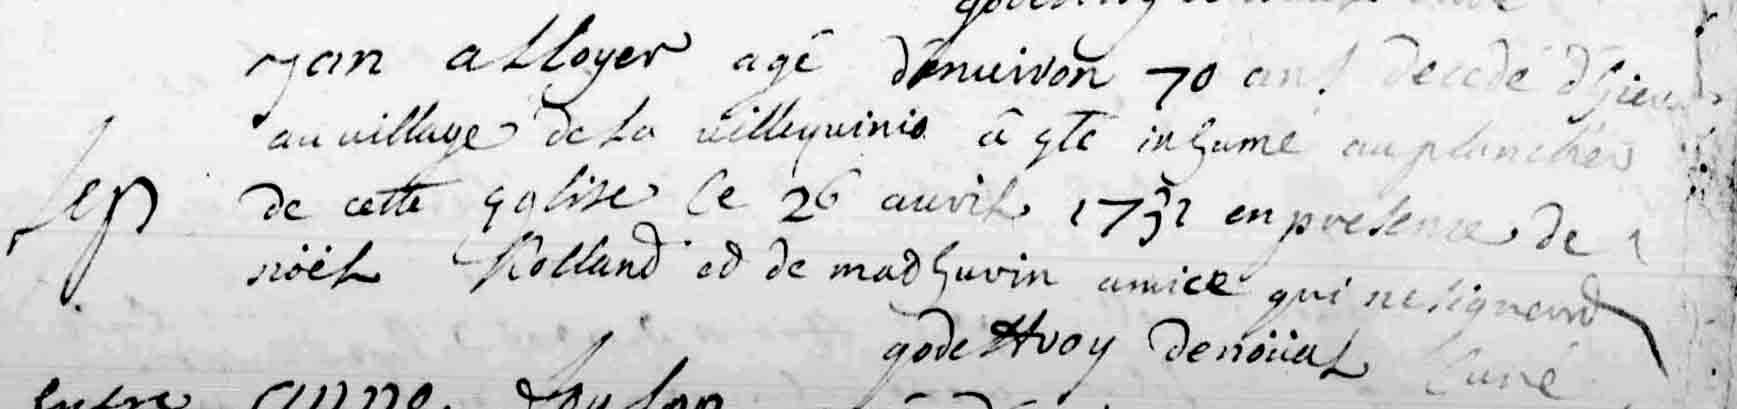 yan alloyer agé denuiron 70 ans decedé dhier
au village de la villeguinio a eté inhumé au planchers
de cette eglise le 26 auvril 1731 en presence de
noël Rolland et de mathuvin amice qui ne signent
godethvoy denoüal Curé
Sep